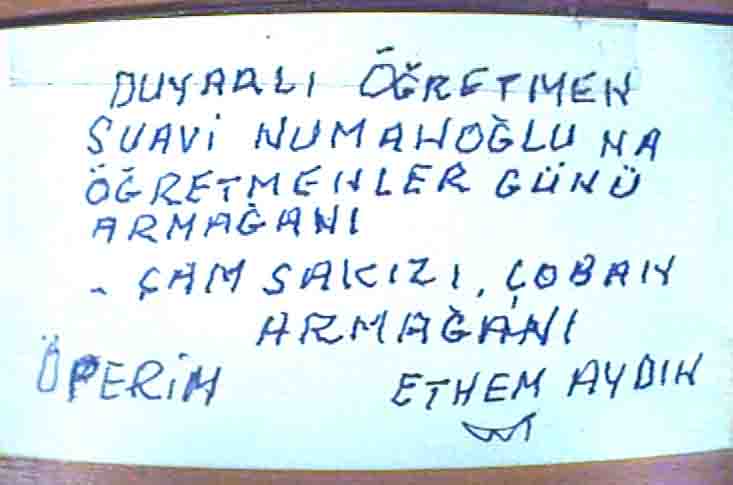 DUYARLI ÖĞRETMEN
SUAVİ NUMANOĞLU NA
ÖĞRETMENLER GÜNÜ
ARMAĞANI
- ÇAM SAKIZI, ÇOBAN
ARMAĞANI
ÖPERİM ETHEM AYDIN